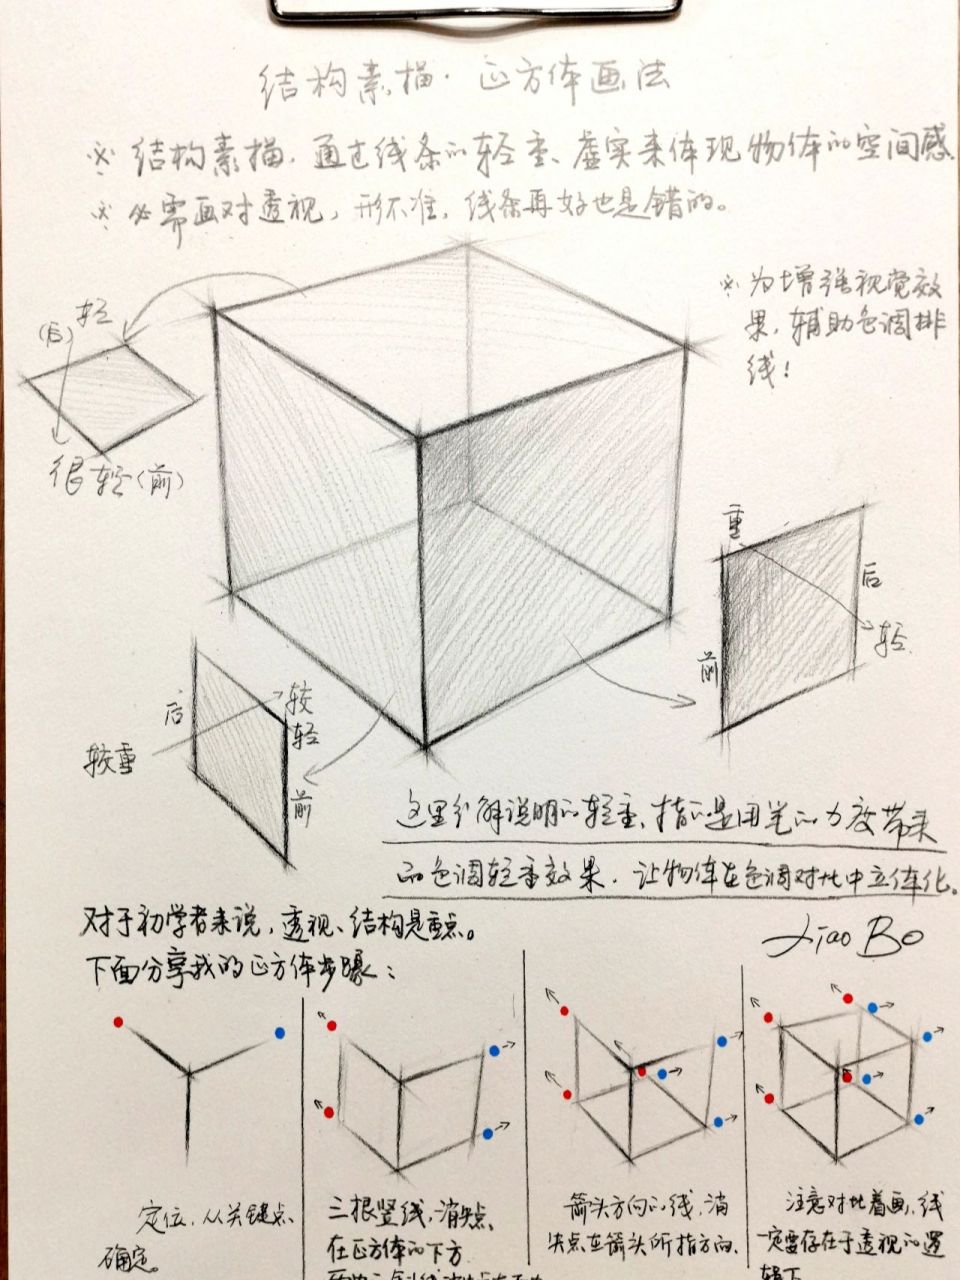 结构素描·正方体画法
※ 结构素描.通过线条的轻重、虚实来体现物体的空间感.
※ 必需画对透视，形不准，线条再好也是错的。
※ 为增强视觉效
果，辅助色调排
线！
轻
(后)
很轻(前)
重
后
轻
前
后
较
轻
较重
前
这里分解说明的轻重、指的是用笔的力度带来
的色调轻重效果.让物体在色调对比中立体化。
对于初学者来说，透视、结构是重点。
Jiao Bo
下面分享我的正方体步骤：
定位.从关键点
确定。
三根竖线，消失点
在正方体的下方
箭头方向的线，消
失点在箭头所指方向.
注意对比着画，线
一定要存在于透视的逻
辑下